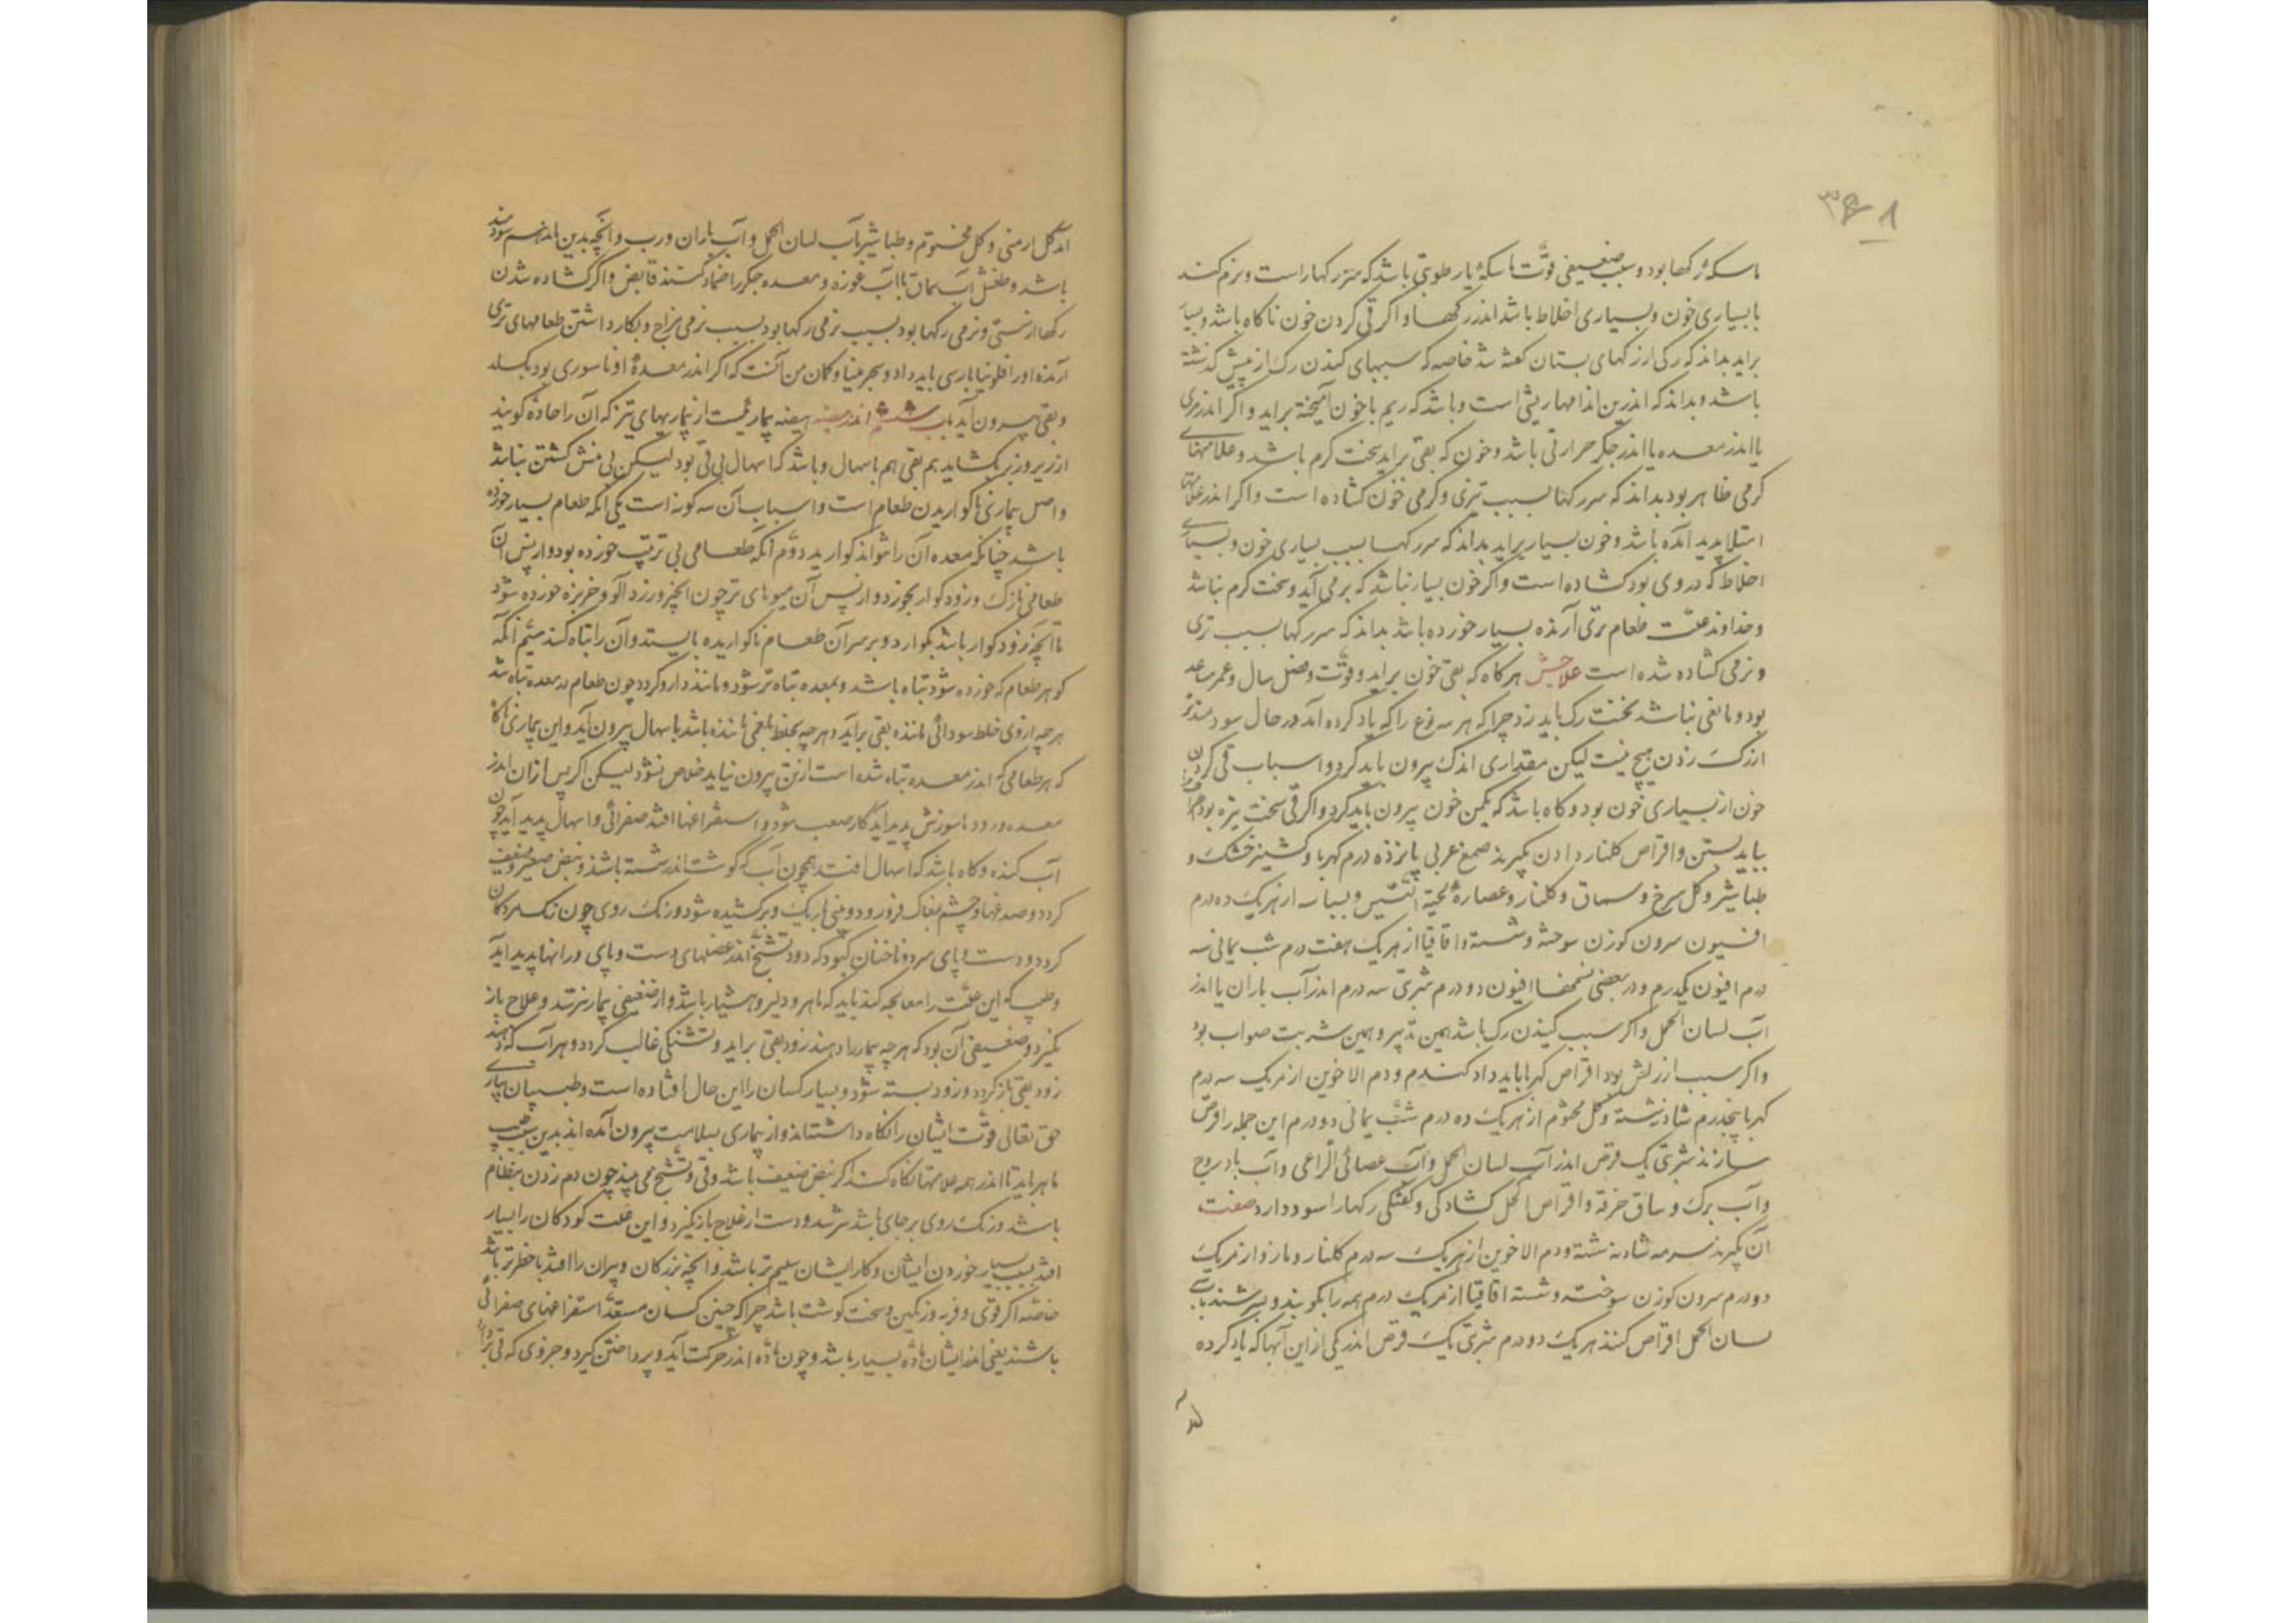 ماسکهٔ رکها بود و سبب ضعیفی قوّت ماسکهٔ یا رطوبتی باشد که سر رکها راست و نرم کند
یا بسیاری خون و بسیاری اخلاط باشد اندر رکها و اکر قی کردن خون ناکاه باشد و بسیار
براید بداند که رکی از رکهای بستان کفته شد خاصه که سببهای کندن رک از پیش کذشته
باشد و بداند که اندرین اندامها ریشی است و باشد که ریم با خون آمیخته براید و اکر اندر مری
یا اندر معده یا اندر جکر حرارتی باشد و خون که بقی براید سخت کرم باشد و علامتهای
کرمی ظاهر بود بداند که سر رکها بسبب تیزی و کرمی خون کشاده است و اکر اندر علامتهای
امتلا پدید آمده باشد و خون بسیار براید بداند که سر رکها بسبب بسیاری خون و بسیاری
اخلاط که در وی بود کشاده است و اکر خون بسیار نباشد که برمی آید و سخت کرم نباشد
و خداوند علّت طعام تری آرنده بسیار خورده باشد بداند که سر رکها بسبب تری
و نرمی کشاده شده است علاجش هرکاه که بقی خون براید و قوّت و فصل سال و عمر مساعد
بود و مانعی نباشد نخست رک باید زد چراکه هر سه نوع را که یاد کرده آمد در حال سودمندتر
از رک زدن هیچ نیست لیکن مقداری اندک بیرون باید کرد و اسباب قی کردن
خون از بسیاری خون بود و کاه باشد که یکمن خون بیرون باید کرد و اکر قی سخت تیزه بود
بباید بستن و اقراص کلنار دادن بکیرند صمغ عربی پانزده درم کهربا و کشنیز خشک و
طباشیر و کل سرخ و سماق و کلنار و عصارهٔ لحیة التّیس و بسباسه از هریک ده درم
افسیون سرون کوزن سوخته و شسته و اقاقیا از هریک هفت درم شب یمانی سه
درم افیون یکدرم و در بعضی نسختها افیون دو درم شربتی سه درم اندر آب باران یا اندر
آب لسان الحمل و اکر سبب کندن رک باشد همین تدبیر و همین شربت صواب بود
و اکر سبب از ریش بود اقراص کهربا باید داد کندر و دم الاخوین از هریک سه درم
کهربا پنجدرم شادنه شسته و کل مختوم از هریک ده درم شبّ یمانی دو درم این جمله را قرص
سازند شربتی یک قرص اندر آب لسان الحمل و آب عصا الراعی و آب بادروج
و آب برک و ساق خرفه و اقراص الکحل کشادکی و کفتکی رکها را سود دارد صفت
آن بکیرند سرمه شادنه شسته و دم الاخوین از هریک سه درم کلنار و مازو از هریک
دو درم سرون کوزن سوخته و شسته اقاقیا از هریک درم همه را بکوبند و بسرشند بآب
لسان الحمل اقراص کنند هریک دو درم شربتی یک قرص اندر یکی از این آبها که یاد کرده
آمد
آمد کل ارمنی و کل مختوم و طباشیر بآب لسان الحمل و آب باران و رب و آنچه بدین ماند هم سودمند
باشد و طفشیل آب سماق یا آب غوره و معده و جکر را ضماد کنند قابض و اکر کشاده شدن
رکها از سستی و نرمی رکها بود بسبب نرمی رکها بود بسبب نرمی مزاج و بکار داشتن طعامهای تری
آرنده او را فلونیا پارسی باید داد و سجرینیا و کمان من آنست که اکر اندر معدهٔ او ناسوری بود بکسلد
و بقی بیرون آید باب ششم اندر هیضه هیضه بیماریست از بیماریهای تیز که آن را حادّه کویند
از زیر و زبر بکشاید هم بقی هم باسهال و باشد که اسهال بی قی بود لیکن بی منش کشتن نباشد
و اصل بیماری ناکواریدن طعام است و اسباب آن سه کونه است یکی آنکه طعام بسیار خورده
باشد چنانکه معده آن را نتواند کوارید دوّم آنکه طعامی بی ترتیب خورده بود و از پس آن
طعامی نازک و زود کوار بخورد و از پس آن میوهای تر چون انجیر و زردآلو و خربزه خورده شود
تا آنچه زود کوار باشد بکوارد و بر سر آن طعام ناکواریده بایستد و آن را تباه کند سیّم آنکه
کوهر طعام که خورده شود تباه باشد و بمعده تباه تر شود و مانند دارو کردد چون طعام در معده تباه شد
هر چه از وی خلط سودائی مانده بقی براید و هر چه بخلط بلغمی مانده باشد باسهال بیرون آید و این بیماری ناکاه
که هر طعامی که اندر معده تباه شده است از تن بیرون نیاید خلاص نشود لیکن اکر پس از آن اندر
معده و رودها سوزش پدید آید کار صعب شود و استفراغها افتد صفرائی و اسهال پدید آید چون
آب کنده و کاه باشد که اسهال افتد همچون آب که کوشت اندر شسته باشند و نبض صغیر و ضعیف
کردد و صدغها و چشم بمغاک فرو رود و بینی باریک و برکشیده شود و رنک روی چون رنک مردکان
کردد و دست و پای سرد و ناخنان کبود کردد و تشنّج اندر عضلهای دست و پای و رانها پدید آید
و طبیب که این علّت را معالجه کند باید که ماهر و دلیر و هشیار باشد و از ضعیفی بیمار نترسد و علاج باز
نکیرد و ضعیفی آن بود که هر چه بیمار را دهند زود بقی براید و تشنکی غالب کردد و هر آب که دهند
زود بقی باز کردد و زود بسته شود و بسیار کسان را این حال افتاده است و طبیبان بیاری
حق تعالی قوّت ایشان را نکاه داشته‌اند و از بیماری بسلامت بیرون آمده‌اند بدین سبب طبیب
ماهر باید تا اندر همه علامتها نکاه کند اکر نبض ضعیف باشد و قی و تشنّج می بیند چون دم زدن بنظام
باشد و رنک روی بر جای باشد نترسد و دست از علاج باز نکیرد و این علّت کودکان را بسیار
افتد بسبب بسیار خوردن ایشان و کار ایشان سلیم تر باشد و آنچه بزرکان و پیران را افتد با خطرتر باشد
خاصّه اکر قوی و فربه و رنکین و سخت کوشت باشد چراکه چنین کسان مستعدّ استفراغهای صفرائی
باشند یعنی اندر ایشان مادّه بسیار باشد و چون مادّه اندر حرکت آید و پرداختن کیرد و جزوی که قی